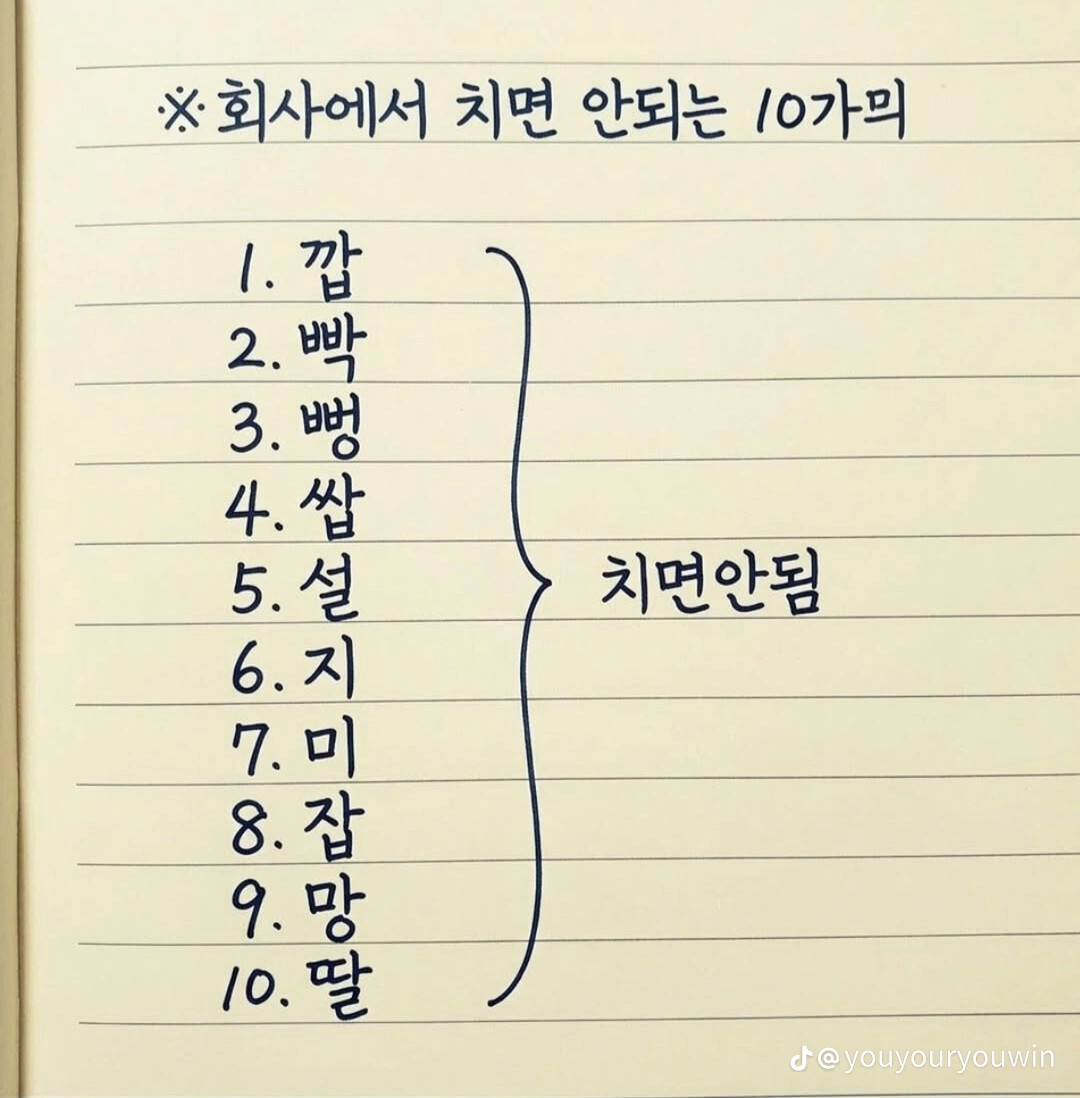 ※회사에서 치면 안되는 10가믜
1. 깝
2. 빡
3. 뻥
4. 쌉
5. 설
6. 지
7. 미
8. 잡
9. 망
10. 딸
치면안됨
@youyouryouwin